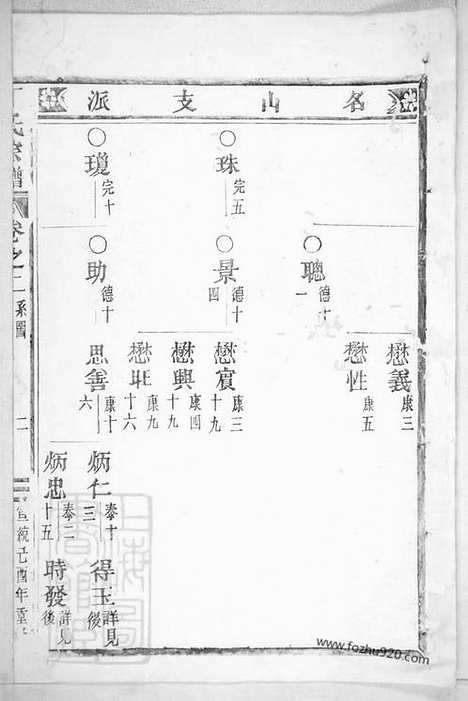 名山支派
○珠 完五
○瓊 完十
○聰 德十一
○景 德十四
○助 德十
懋義 康三
懋性 康五
懋賓 康三十九
懋興 康四十九
懋旺 康九十六
思善 康十六
炳仁 泰十三
炳忠 泰二十五
得玉 詳見後
時發 詳見後
氏宗譜
卷之二 系圖
二
宣統己酉年重
www.fozhu920.com